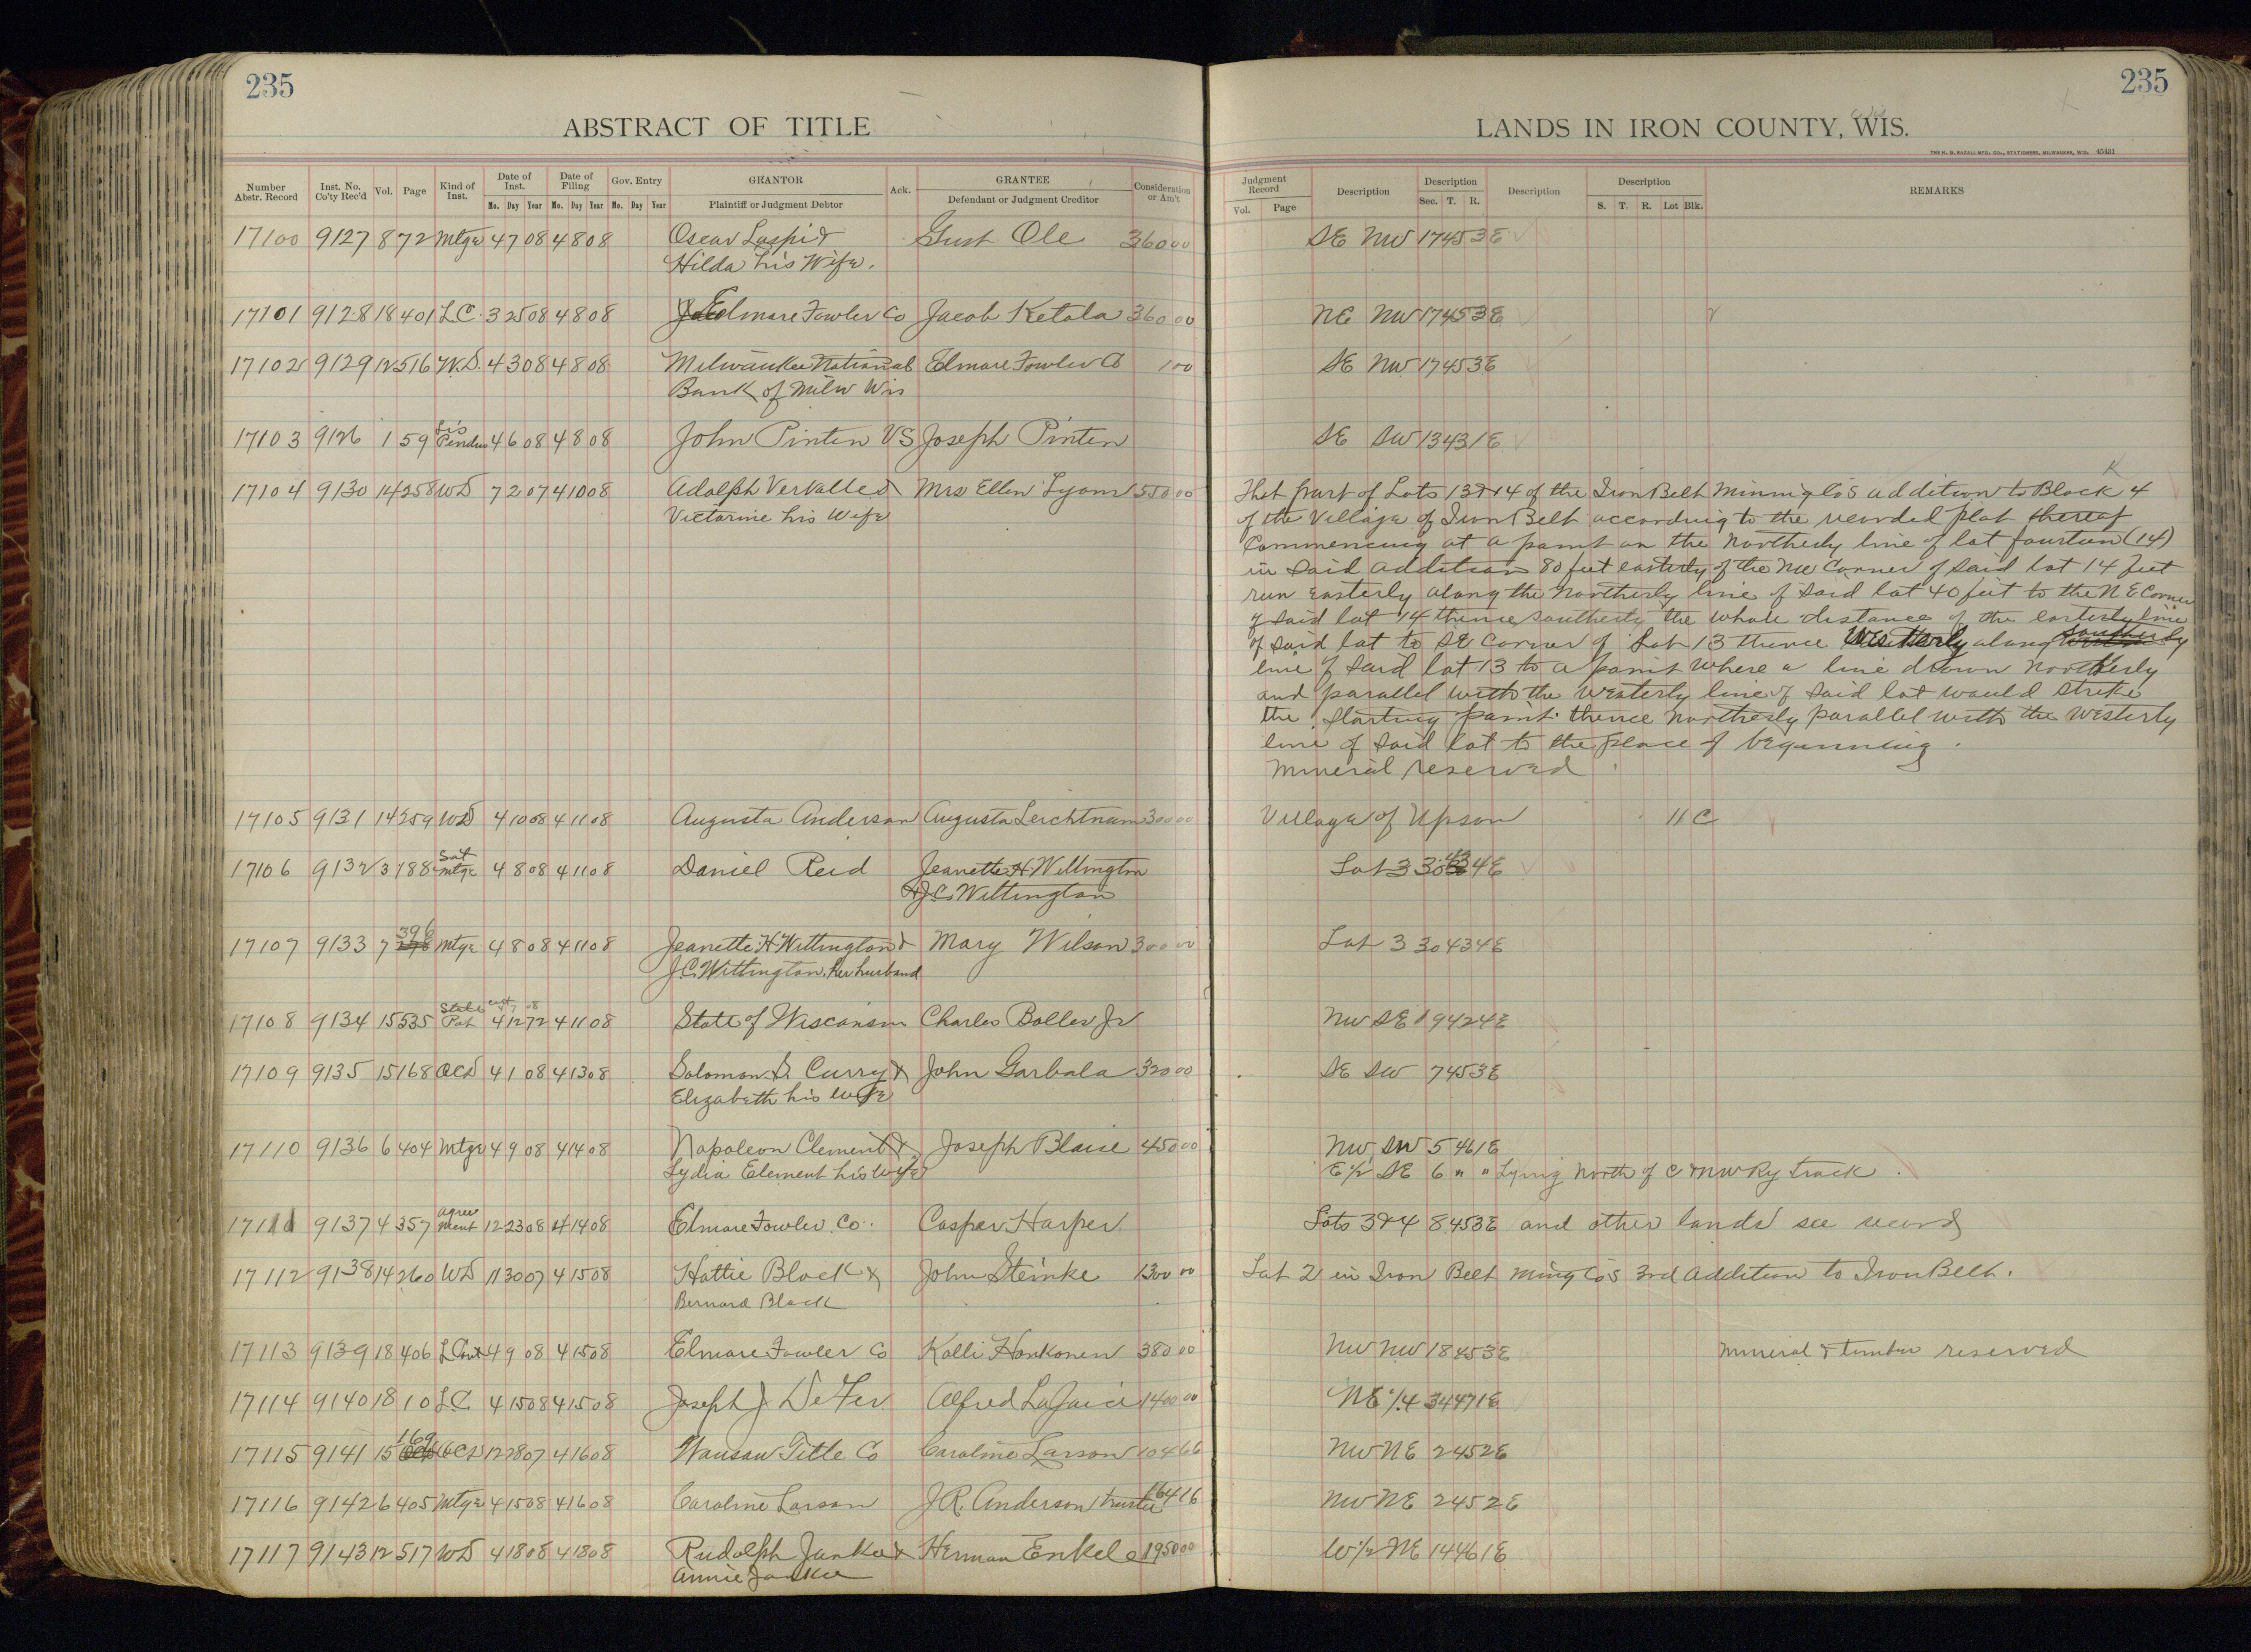 235
235
ABSTRACT OF TITLE
LANDS IN IRON COUNTY, WIS.
THE H. G. RAZALL MFG. CO., STATIONERS, MILWAUKEE, WIS. 45431
Number Abstr. Record Inst. No. Co'ty Rec'd Vol. Page Kind of Inst. Date of Inst. Mo. Day Year Date of Filing Mo. Day Year Gov. Entry Mo. Day Year GRANTOR Plaintiff or Judgment Debtor Ack. GRANTEE Defendant or Judgment Creditor Consideration or Am't
Judgment Record Vol. Page Description Description Sec. T. R. Description Description S. T. R. Lot Blk. REMARKS
17100 9127 8 72 Mtge 4 7 08 4 8 08 Oscar Laspi & Gust Ole 360 00 SE NW 17 45 3E
Hilda his Wife.
17101 9128 18 401 L.C. 3 25 08 4 8 08 Elmore Fowler Co Jacob Ketola 360 00 NE NW 17 45 3E
17102 9129 12 516 W.D. 4 3 08 4 8 08 Milwaukee National Elmore Fowler Co 1 00 SE NW 17 45 3E
Bank of Milw Wis
17103 9126 1 59 Lis Pendus 4 6 08 4 8 08 John Pinten VS Joseph Pinten SE SW 13 43 1E
17104 9130 14 258 WD 7 2 07 4 10 08 Adolph Vervalle & Mrs Ellen Lyons 550 00 That part of Lots 13 & 14 of the Iron Belt Minnig Co's addition to Block 4
Victorine his Wife of the Village of Iron Belt according to the recorded plat thereof
Commencing at a point on the Northerly line of lot fourteen (14)
in said addition 80 feet easterly of the NW Corner of said lot 14 feet
run easterly along the Northerly line of said lot 40 feet to the NE Corner
of said lot 14 thence southerly the whole distance of the easterly line
of said lot to SE Corner of Lot 13 thence Westerly along southerly
line of said lot 13 to a point where a line drawn northerly
and parallel with the westerly line of said lot would strike
the starting point. thence northerly parallel with the westerly
line of said lot to the place of beginning.
Mineral reserved
17105 9131 14 259 WD 4 10 08 4 11 08 Augusta Anderson Augusta Lerchtnam 300 00 Village of Upson 11 C
17106 9132 3 188 Sat Mtge 4 8 08 4 11 08 Daniel Reid Jeanette H. Wittington Lot 3 30 43 4E
& J.C. Wittington
17107 9133 7 396 Mtge 4 8 08 4 11 08 Jeanette H Wittington & Mary Wilson 300 00 Lot 3 30 43 4E
J.C. Wittington. her husband
17108 9134 15 535 State Pat 4 12 72 4 11 08 State of Wisconsin Charles Boller Jr NW SE 19 42 4E
17109 9135 15 168 QCD 4 1 08 4 13 08 Solomon S. Curry & John Garbala 320 00 SE SW 7 45 3E
Elizabeth his wife
17110 9136 6 404 Mtge 4 9 08 4 14 08 Napoleon Clement & Joseph Blaise 450 00 NW SW 5 46 1E
Lydia Element his wife E 1/2 SE 6 " " Lying North of C & NW Ry track.
17111 9137 4 357 agree ment 12 23 08 4 14 08 Elmore Fowler Co. Casper Harper Lots 3 & 4 8 45 3E and other lands see record
17112 9138 14 260 WD 11 30 07 4 15 08 Hattie Block & John Steinke 1300 00 Lot 2 in Iron Belt Ming Co's 3rd Addition to Iron Belt.
Bernard Block
17113 9139 18 406 L Cont 4 9 08 4 15 08 Elmore Fowler Co Kalli Honkonen 380 00 NW NW 18 45 3E Mineral & timber reserved
17114 9140 18 10 L.C. 4 15 08 4 15 08 Joseph J. DeFer Alfred LaJoice 1400 00 NE 1/4 34 47 1E
17115 9141 15 169 QCD 12 28 07 4 16 08 Wausau Title Co Caroline Larson 104 66 NW NE 2 45 2E
17116 9142 6 405 Mtge 4 15 08 4 16 08 Caroline Larson J.R. Anderson trustee 164 16 NW NE 2 45 2E
17117 9143 12 517 WD 4 18 08 4 18 08 Rudolph Janke & Herman Enkele 1950 00 W 1/2 NE 14 46 1E
Annie Janke